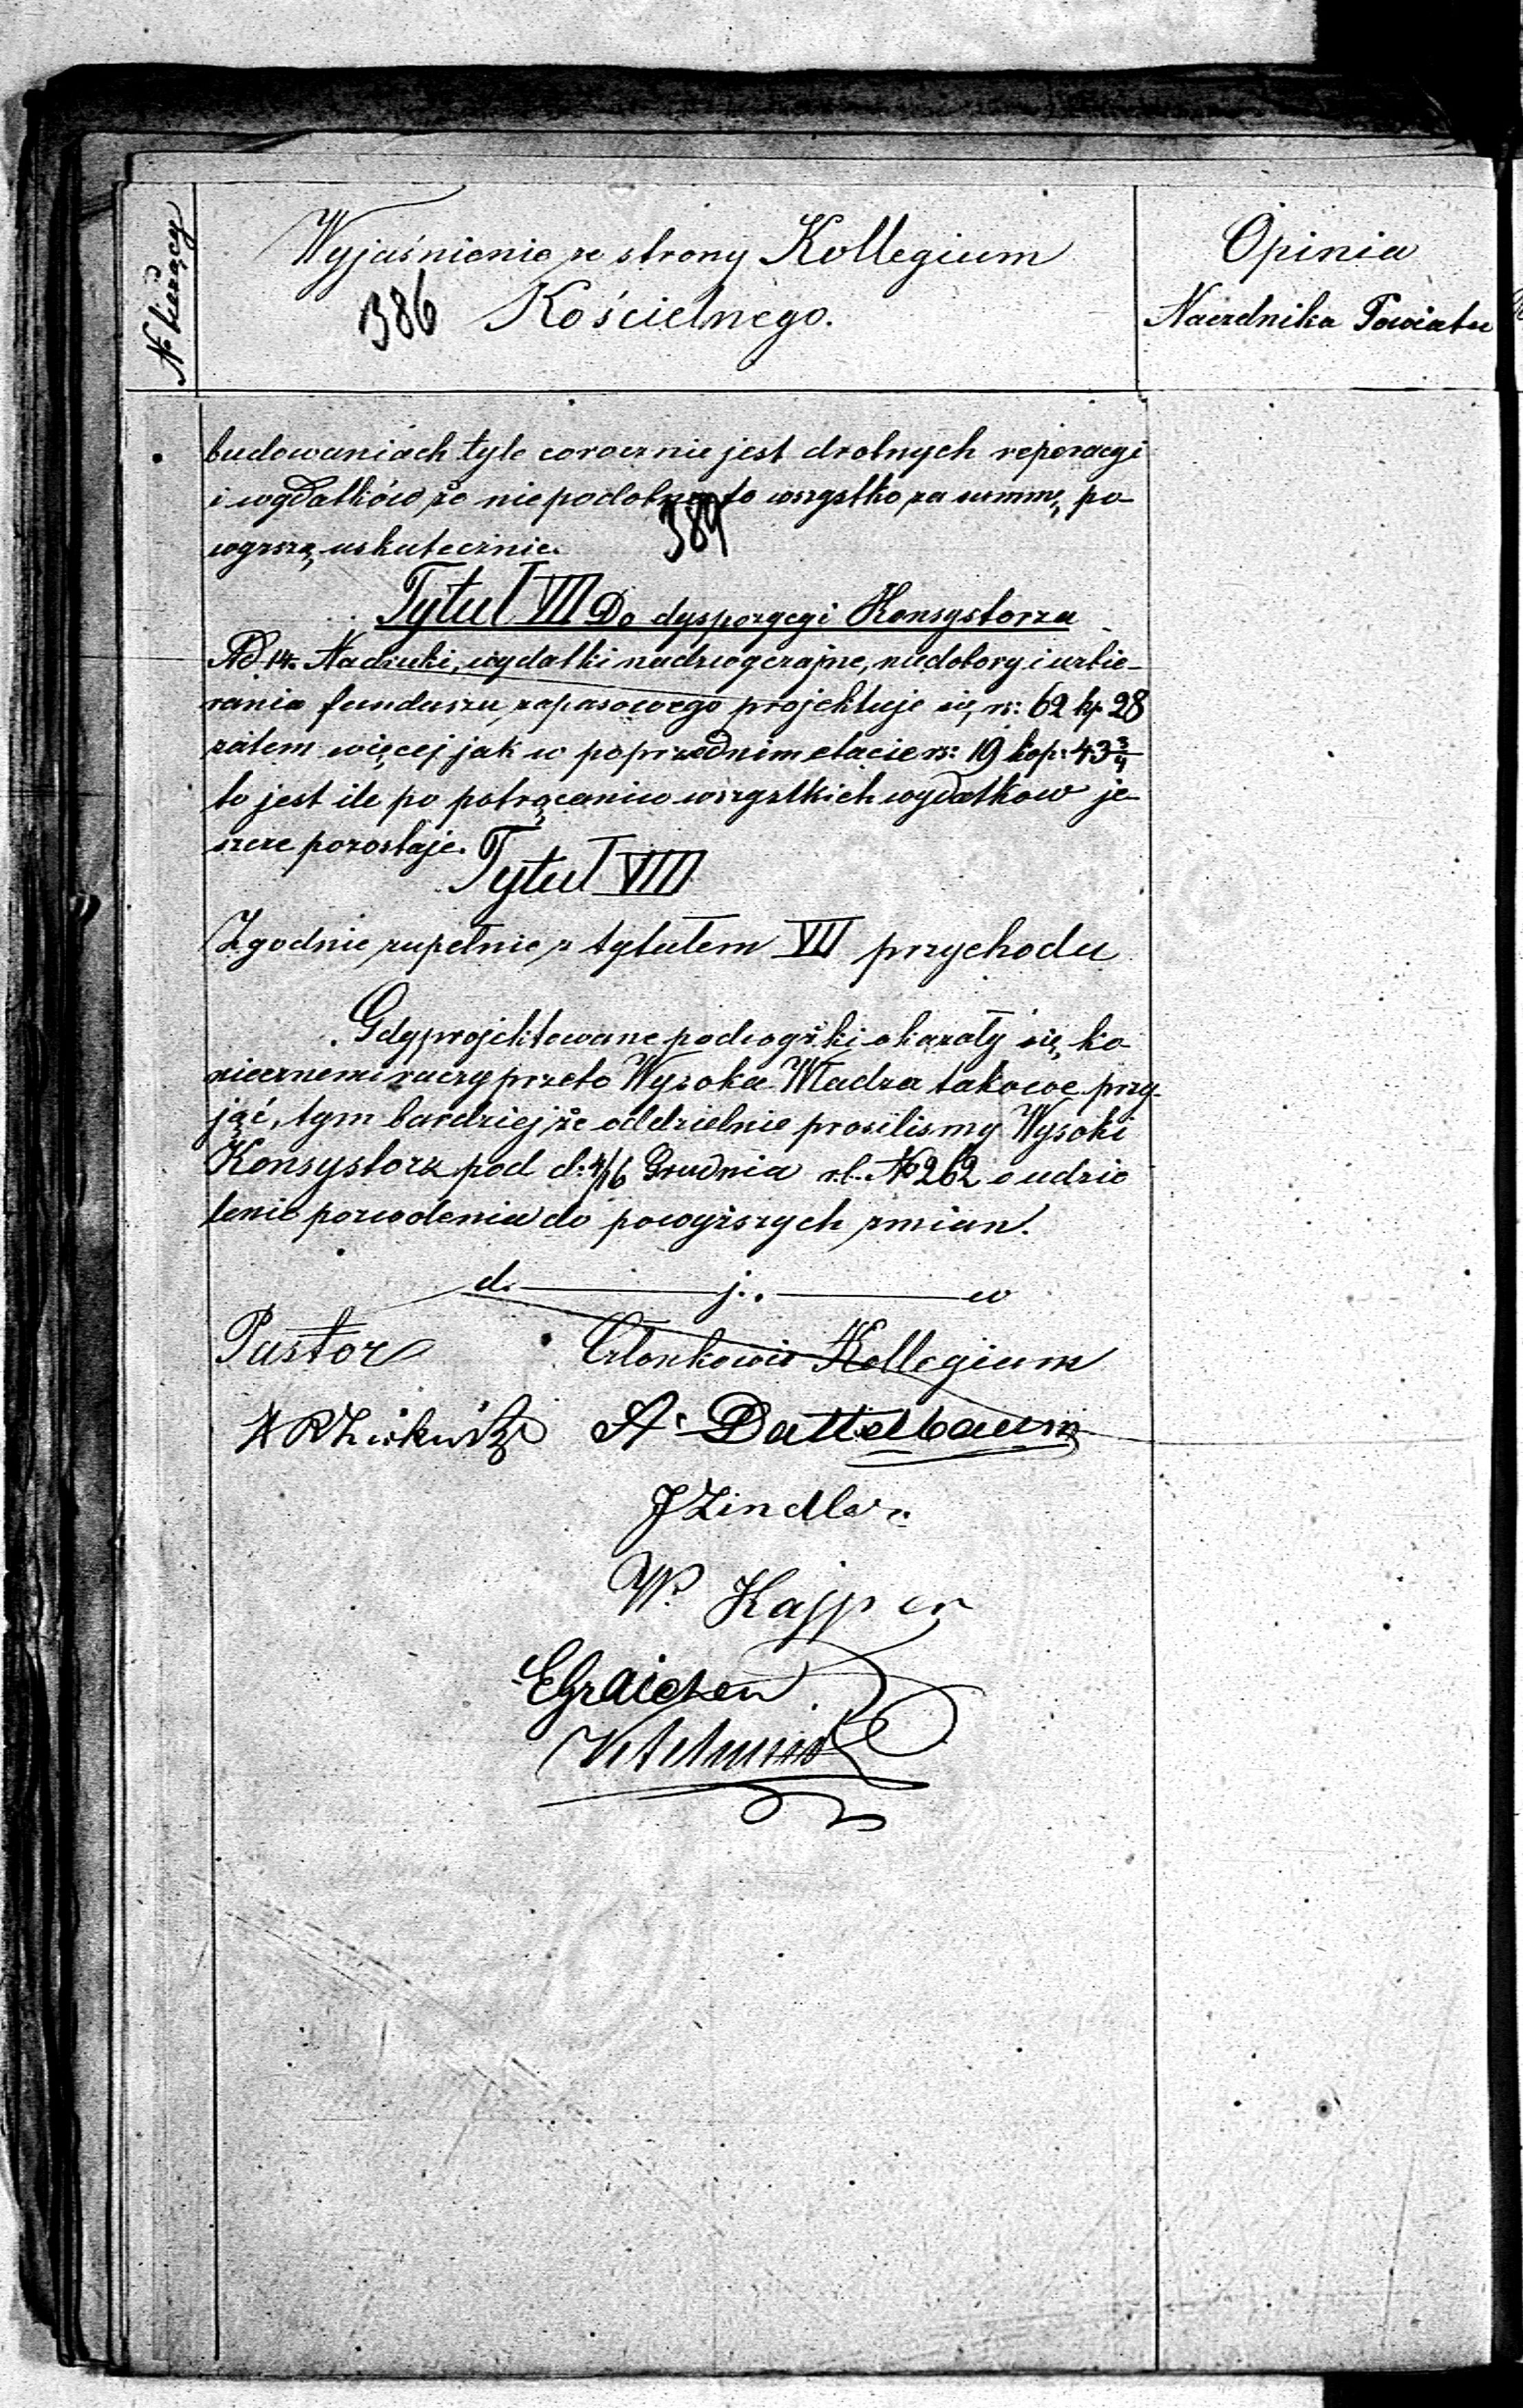 No bieżący
Wyjaśnienie ze strony Kollegium
386 Kościelnego.
Opinia
Naczelnika Powiatu
budowaniach tyle corocznie jest drobnych reperacyi
i wydatków że niepodobna to wszystko za summę po-
389
wyższą uskutecznić.
Tytuł VII Do dyspozycyi Konsystorza
Ad 14. Na druki, wydatki nadzwyczajne, niedobory i uzbie-
rania funduszu zapasowego projektuje się rs: 62 kp 28
zatem więcej jak w poprzednim etacie rs: 19 kop: 43 3/4
to jest ile po potrąceniu wszystkich wydatków je-
szcze pozostaje.
Tytuł VIII
Zgodnie zupełnie z tytułem VII przychodu
Gdy projektowane podwyżki okazały się ko
niecznemi raczy przeto Wysoka Władza takowe przy-
jąć, tym bardziej że oddzielnie prosilismy Wysoki
Konsystorz pod d: 4/16 Grudnia r.b. No 262 o udzie
lenie pozwolenia do powyższych zmian.
d. j. w
Pastor Członkowie Kollegium
A. Dattelbaum
J Zindler
W. Kajper
E Graichen